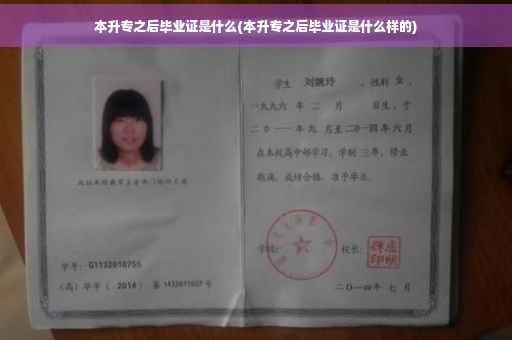 本升专之后毕业证是什么(本升专之后毕业证是什么样的)
学生 刘婉玲 ，性别 女 ，
一九九六 年 二 月 日生，于
二〇一一 年 九 月至 二〇一四 年 六 月
在本校高中部学习，学制 三 年，修业
期满，成绩合格，准予毕业。
学号：G1132010755
(高) 毕字 ( 2014 ) 第 1432011007 号
学校：
校长：
二〇一四年 七 月